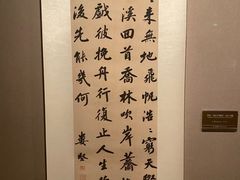 来無地飛帆浩〻窮天
溪回首喬林吹岸薺
戲彼挽舟行復止人生
後先能幾何
婁堅